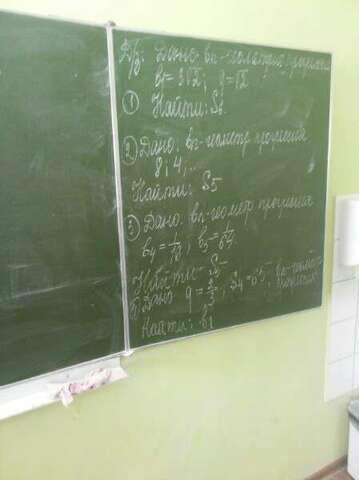 Д/з: Дано bn-геометрич прогрессия
b1=3√2; q=√2
① Найти: S6
② Дано: bn-геометр прогрессия
8, 4, ..
Найти: S5
③ Дано: bn-геометр прогрессия
b4=1/16; b5=1/64.
Найти: S5
Дано q=2/3, S4=65, bn-геометр прогрессия
Найти: b1